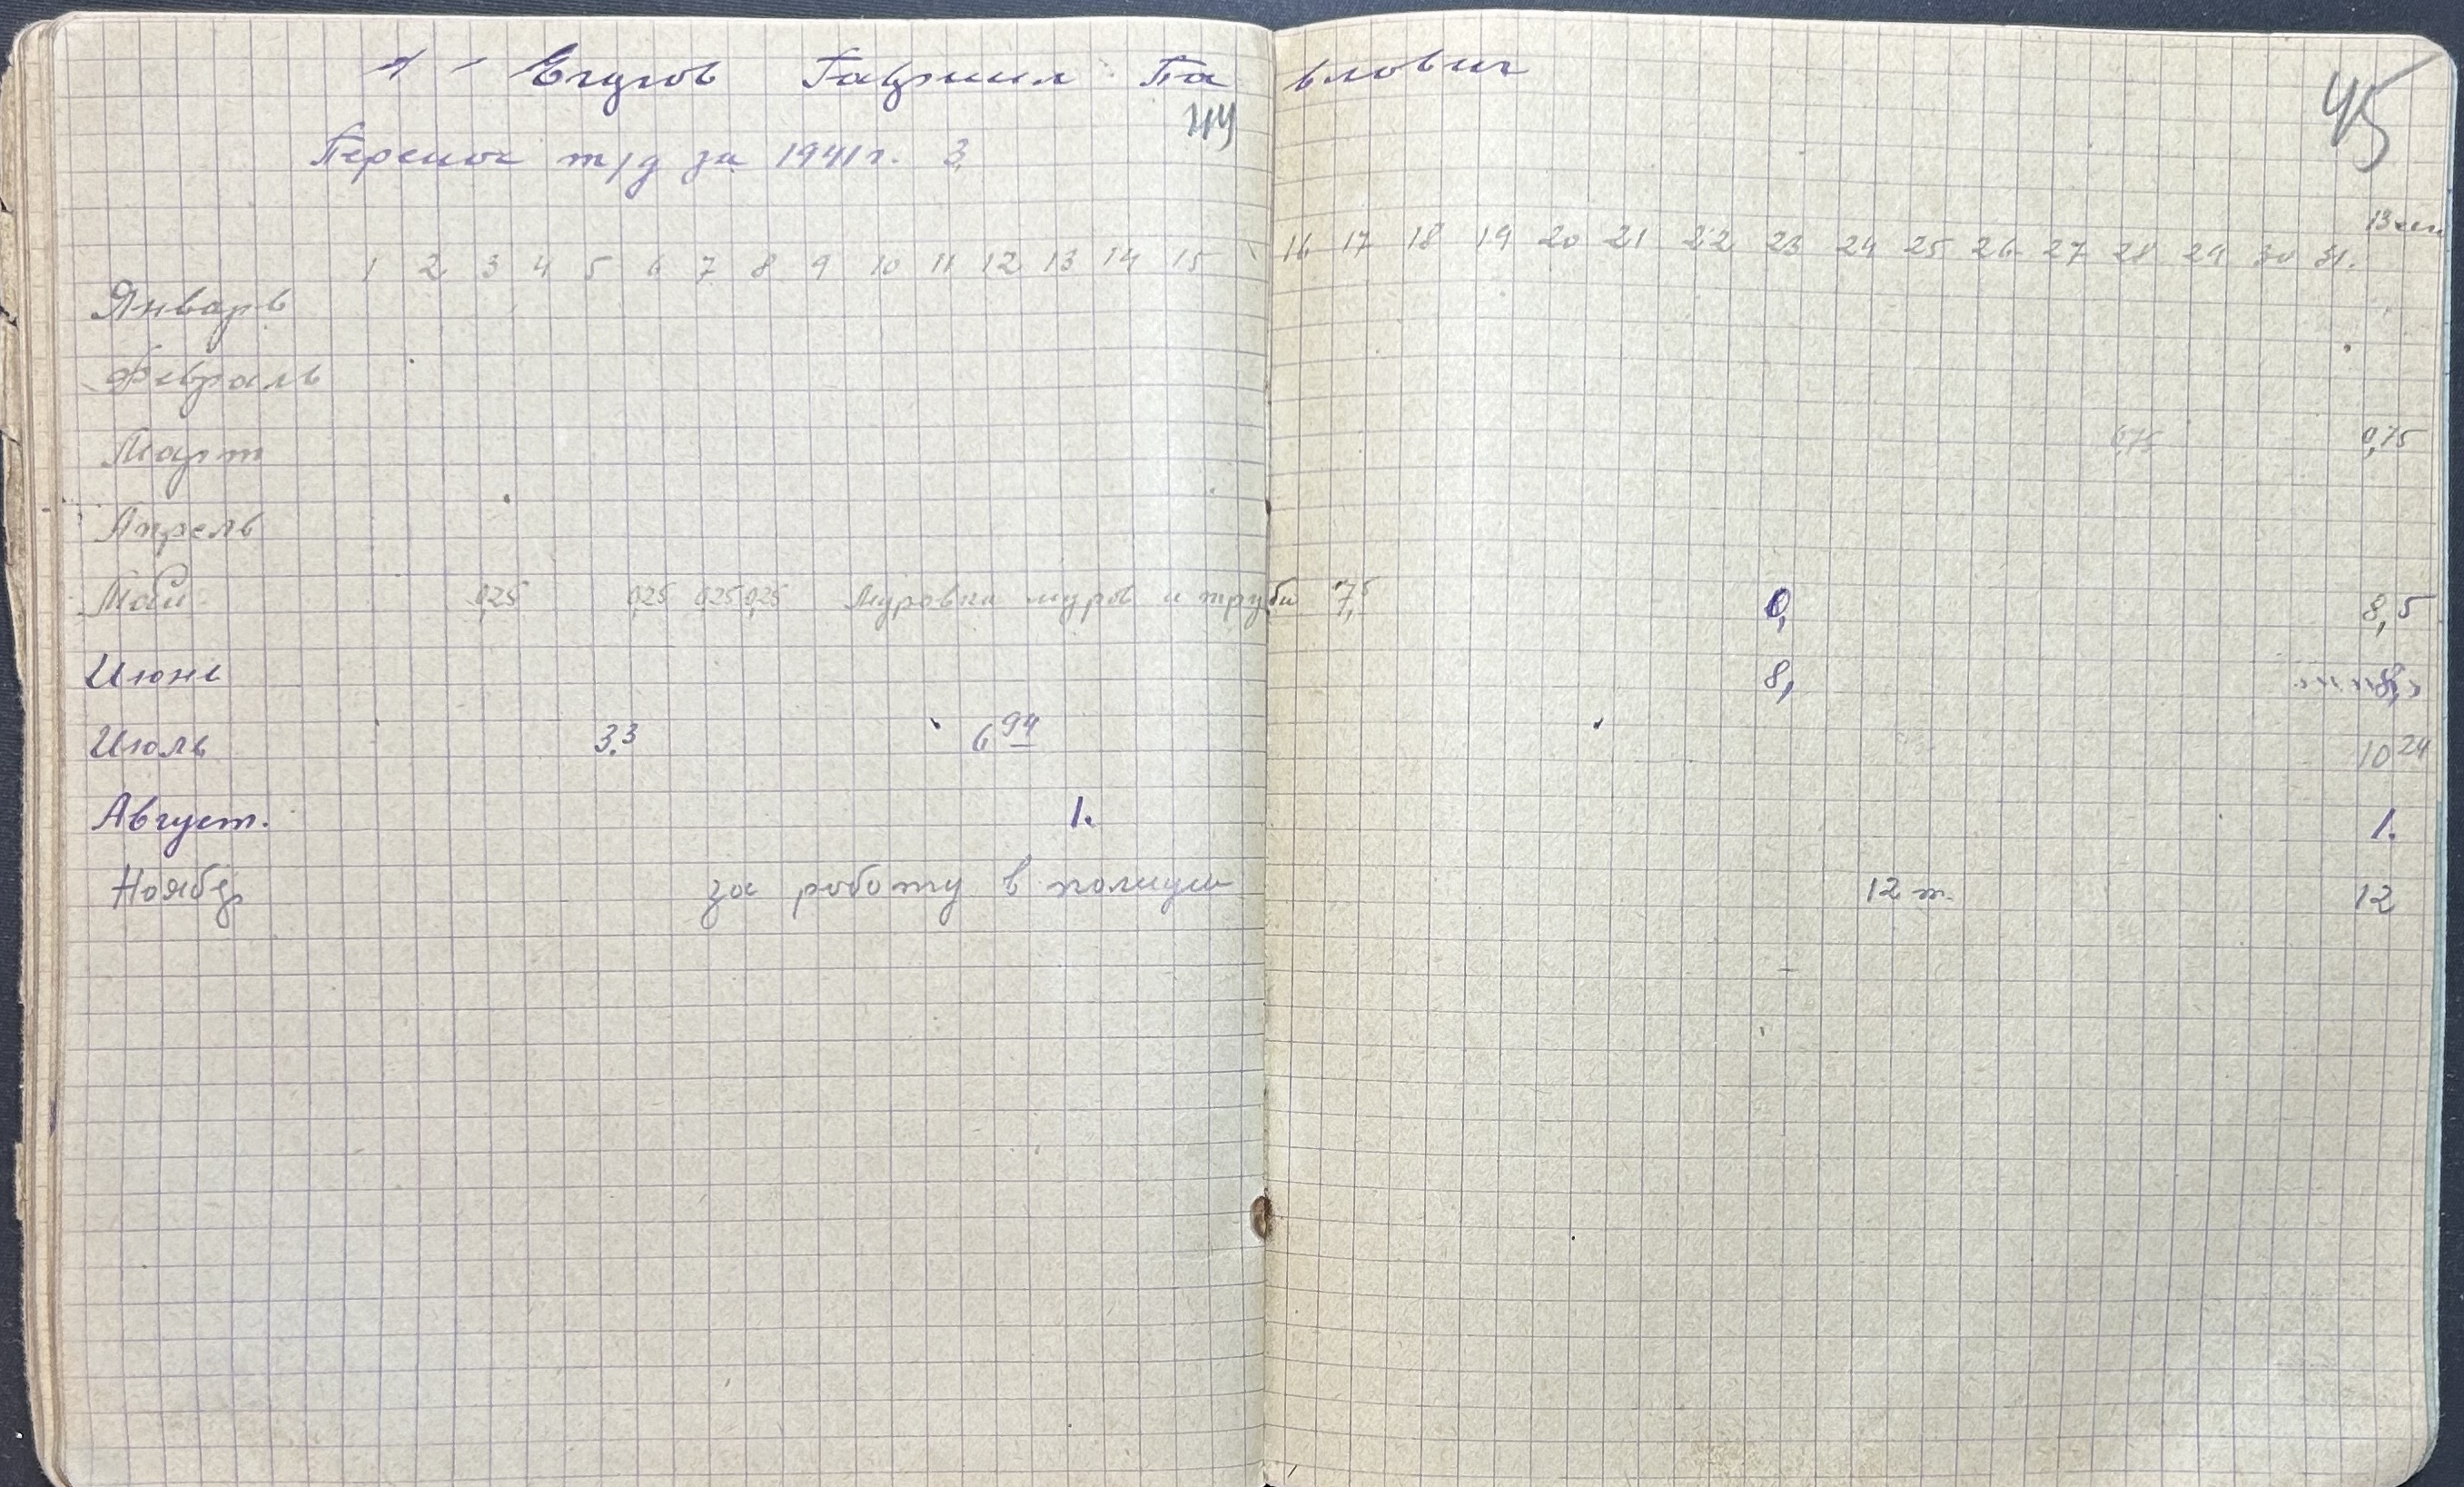 Гавриил Павлович
44 45
т/д за 1941 г. 3
1 2 3 4 5 6 7 8 9 10 11 12 13 14 15 16 17 18 19 20 21 22 23 24 25 26 27 28 29 30 31.
Январь
Февраль
Март 0,75 0,75
Апрель
Май 0,25 0,25 0,25 0,25 Муровка муров и трубы 7,5 0, 8,5
Июнь 8, 8,
Июль 3.3 6 94 10 24
Август. 1. 1.
Ноябр за роботу в 12 т. 12